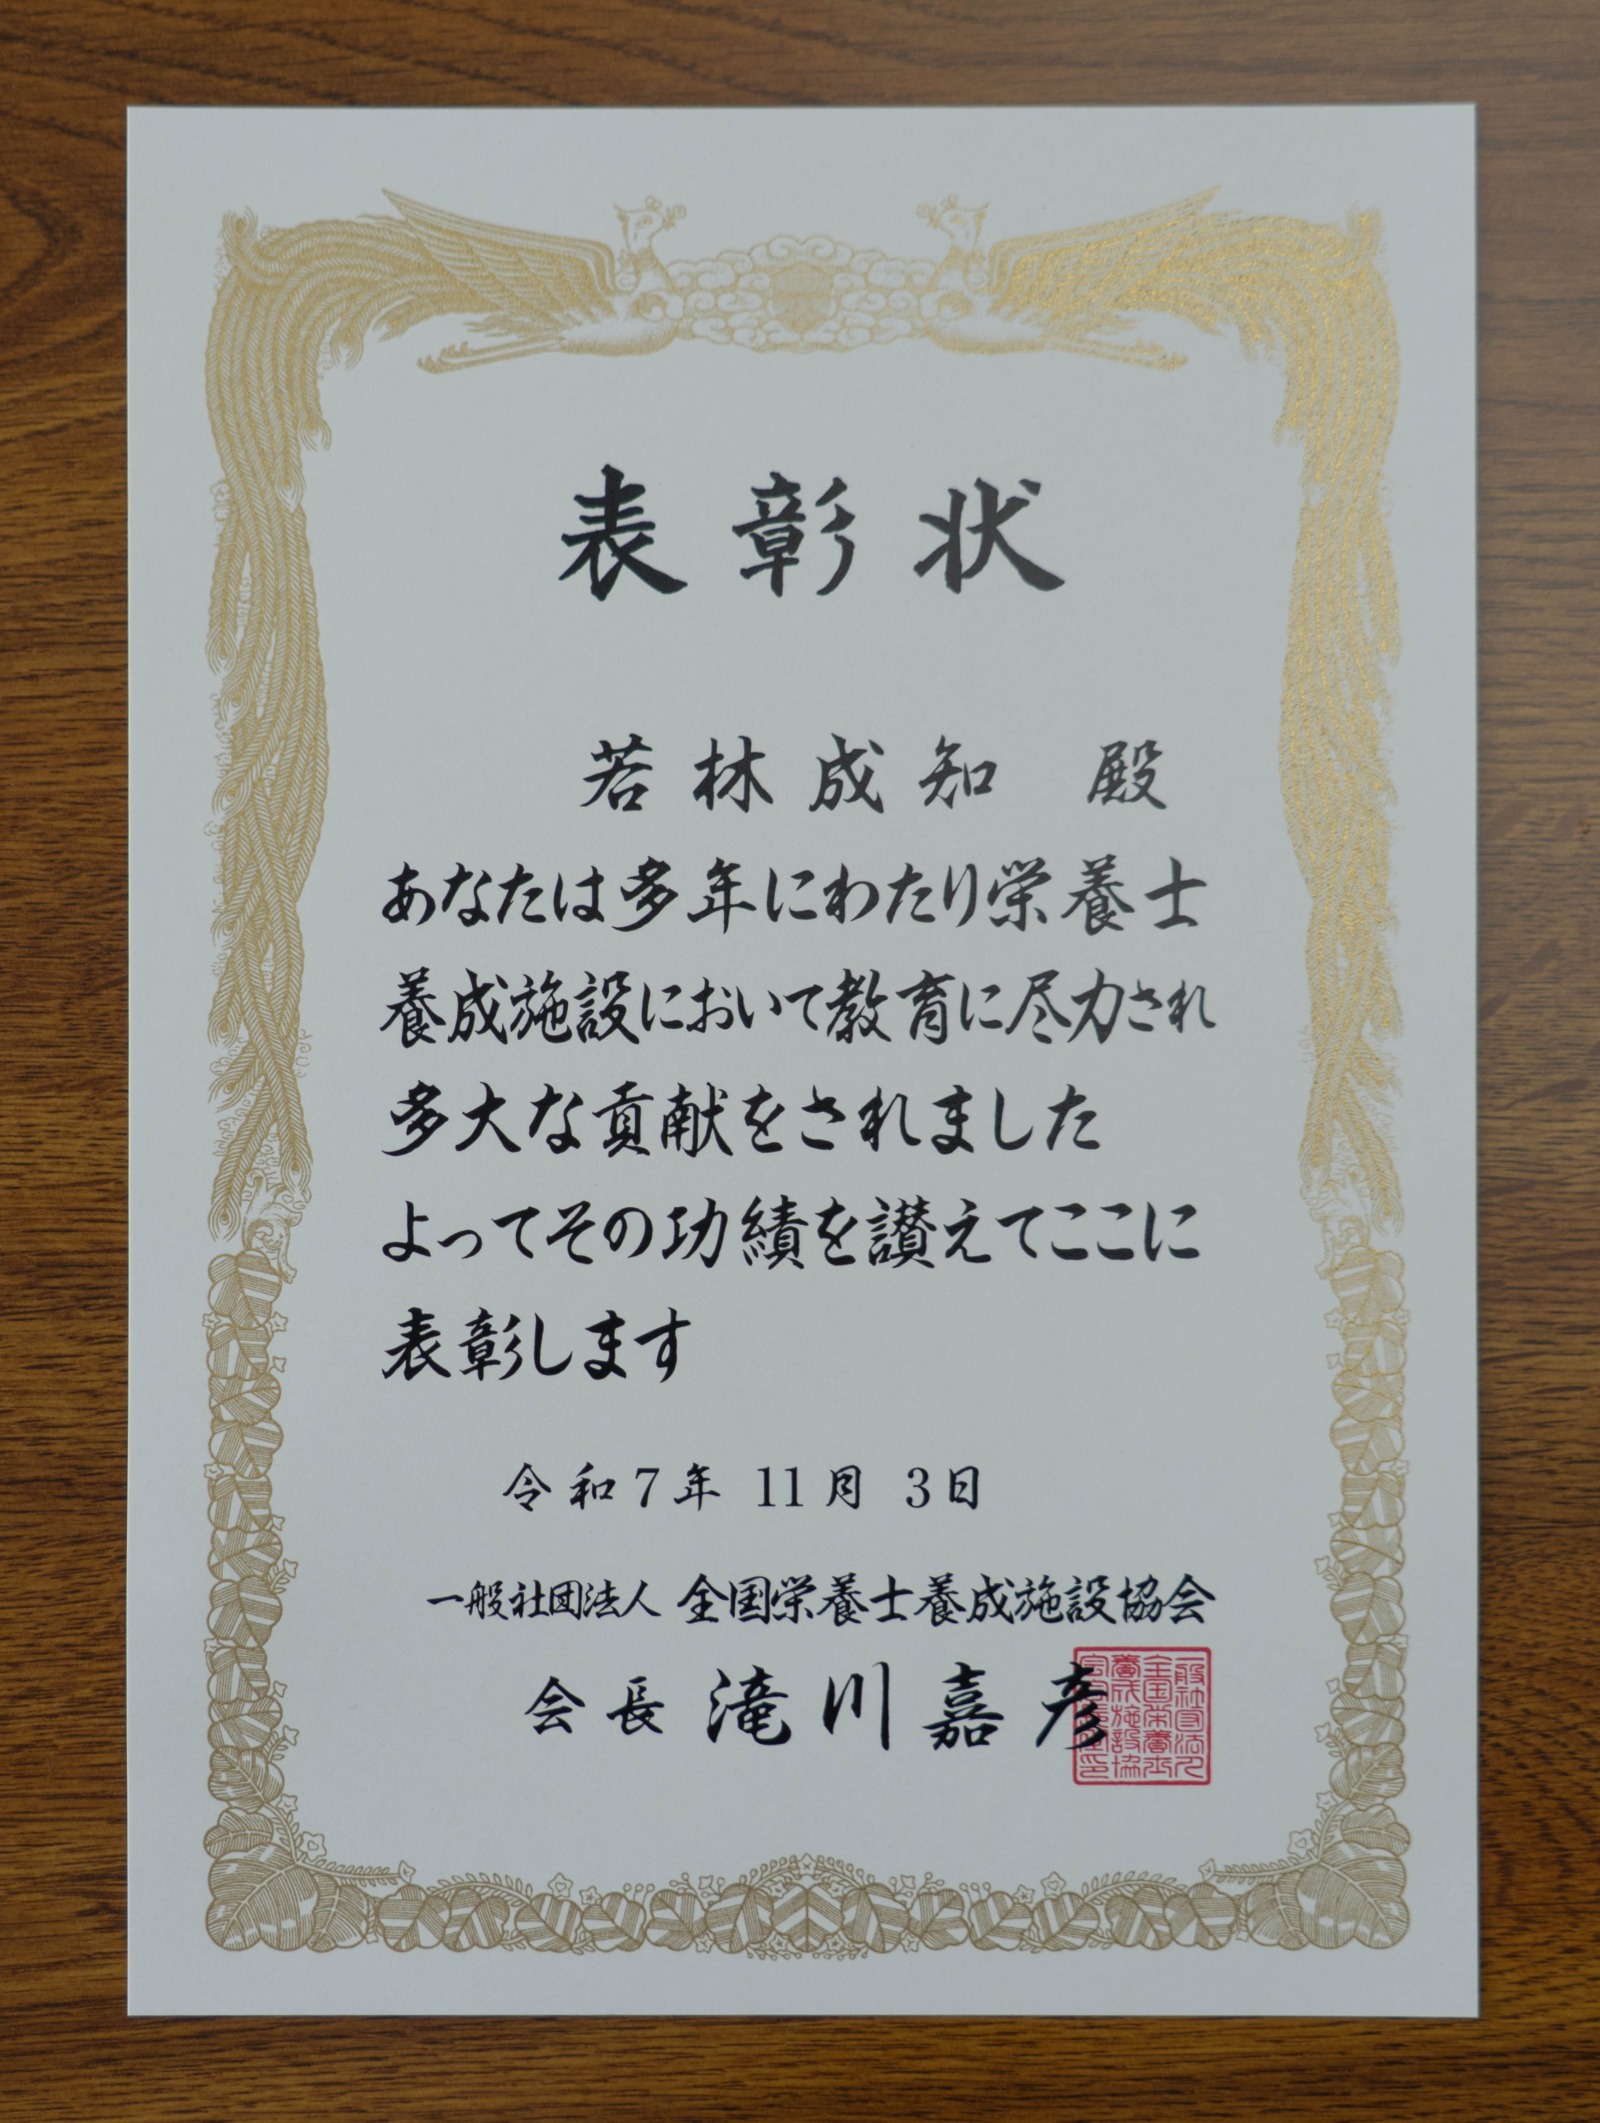 表彰状
若林成知 殿
あなたは多年にわたり栄養士
養成施設において教育に尽力され
多大な貢献をされました
よってその功績を讃えてここに
表彰します
令和7年 11月 3日
一般社団法人 全国栄養士養成施設協会
会長 滝川嘉彦
一般社団法人
全国栄養士
養成施設協